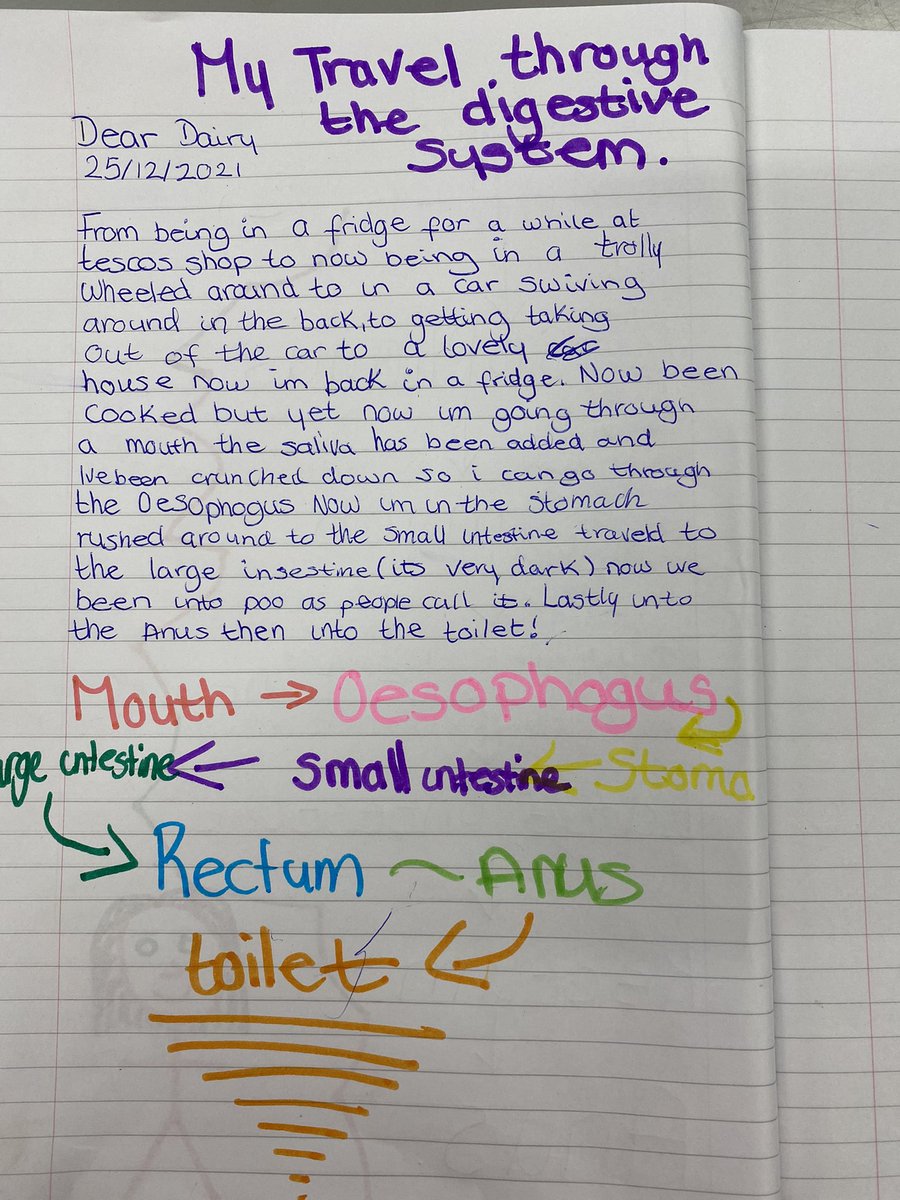 My Travel through
the digestive
system.
Dear Dairy
25/12/2021
From being in a fridge for a while at
tescos shop to now being in a trolly
wheeled around to in a car swiving
around in the back, to getting taking
out of the car to a lovely
house now im back in a fridge. Now been
cooked but yet now im going through
a mouth the saliva has been added and
Ive been crunched down so i can go through
the Oesophogus Now im in the stomach
rushed around to the small intestine traveld to
the large insestine (its very dark) now we
been into poo as people call it. Lastly into
the Anus then into the toilet!
Mouth → Oesophogus
arge intestine ← small intestine ← Stoma
Rectum ~ Anus
toilet